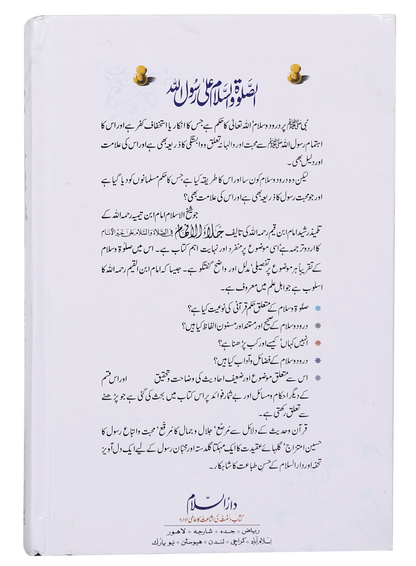 الصلوٰة والسلام علیٰ رسول اللہ
نبی ﷺ پر درود و سلام اللہ تعالیٰ کا حکم ہے جس کا انکار یا استخفاف کفر ہے اور اس کا
اہتمام رسول اللہ ﷺ سے محبت اور والہانہ تعلق و وابستگی کا ذریعہ بھی ہے اور اس کی علامت
اور دلیل بھی۔
لیکن وہ درود و سلام کون سا اور اس کا طریقہ کیا ہے جس کا حکم مسلمانوں کو دیا گیا ہے
اور جو محبت رسول کا ذریعہ بھی ہے اور اس کی علامت بھی؟
جو شیخ الاسلام امام ابن تیمیہ رحمہ اللہ کے
تلمیذ رشید امام ابن قیم رحمہ اللہ کی تالیف جلاء الأفہام فی الصلاة والسلام علی خیر الأنام
کا اردو ترجمہ ہے اسی موضوع پر منفرد اور نہایت اہم کتاب ہے۔ اس میں صلوٰۃ و سلام
کے تقریباً ہر موضوع پر تفصیلی مدلل اور واضح گفتگو ہے۔ جیسا کہ امام ابن القیم رحمہ اللہ کا
اسلوب ہے جو اہل علم میں معروف ہے۔
صلوٰۃ و سلام کے متعلق حکم قرآنی کی نوعیت کیا ہے؟
درود و سلام کے صحیح اور مستند اور مسنون الفاظ کیا ہیں؟
انہیں کہاں، کیسے اور کب پڑھنا ہے؟
درود و سلام کے فضائل و آداب کیا ہیں؟
اس سے متعلق موضوع اور ضعیف احادیث کی وضاحت و تحقیق اور اس قسم
کے دیگر احکام و مسائل اور بے شمار فوائد پر اس کتاب میں بحث کی گئی ہے جو پڑھنے
سے تعلق رکھتی ہے۔
قرآن و حدیث کے دلائل سے مرصع، جلال و جمال کا مرقع، محبت و اتباع رسول کا
حسین امتزاج، گلہائے عقیدت کا ایک مہکتا گلدستہ اور محبان رسول کے لیے ایک دل آویز
تحفہ اور دارالسلام کے حسن طباعت کا شاہکار۔
دارالسلام
کتاب و سنت کی اشاعت کا عالمی ادارہ
ریاض • جدہ • شارجہ • لاہور
اسلام آباد • کراچی • لندن • ہیوسٹن • نیو یارک